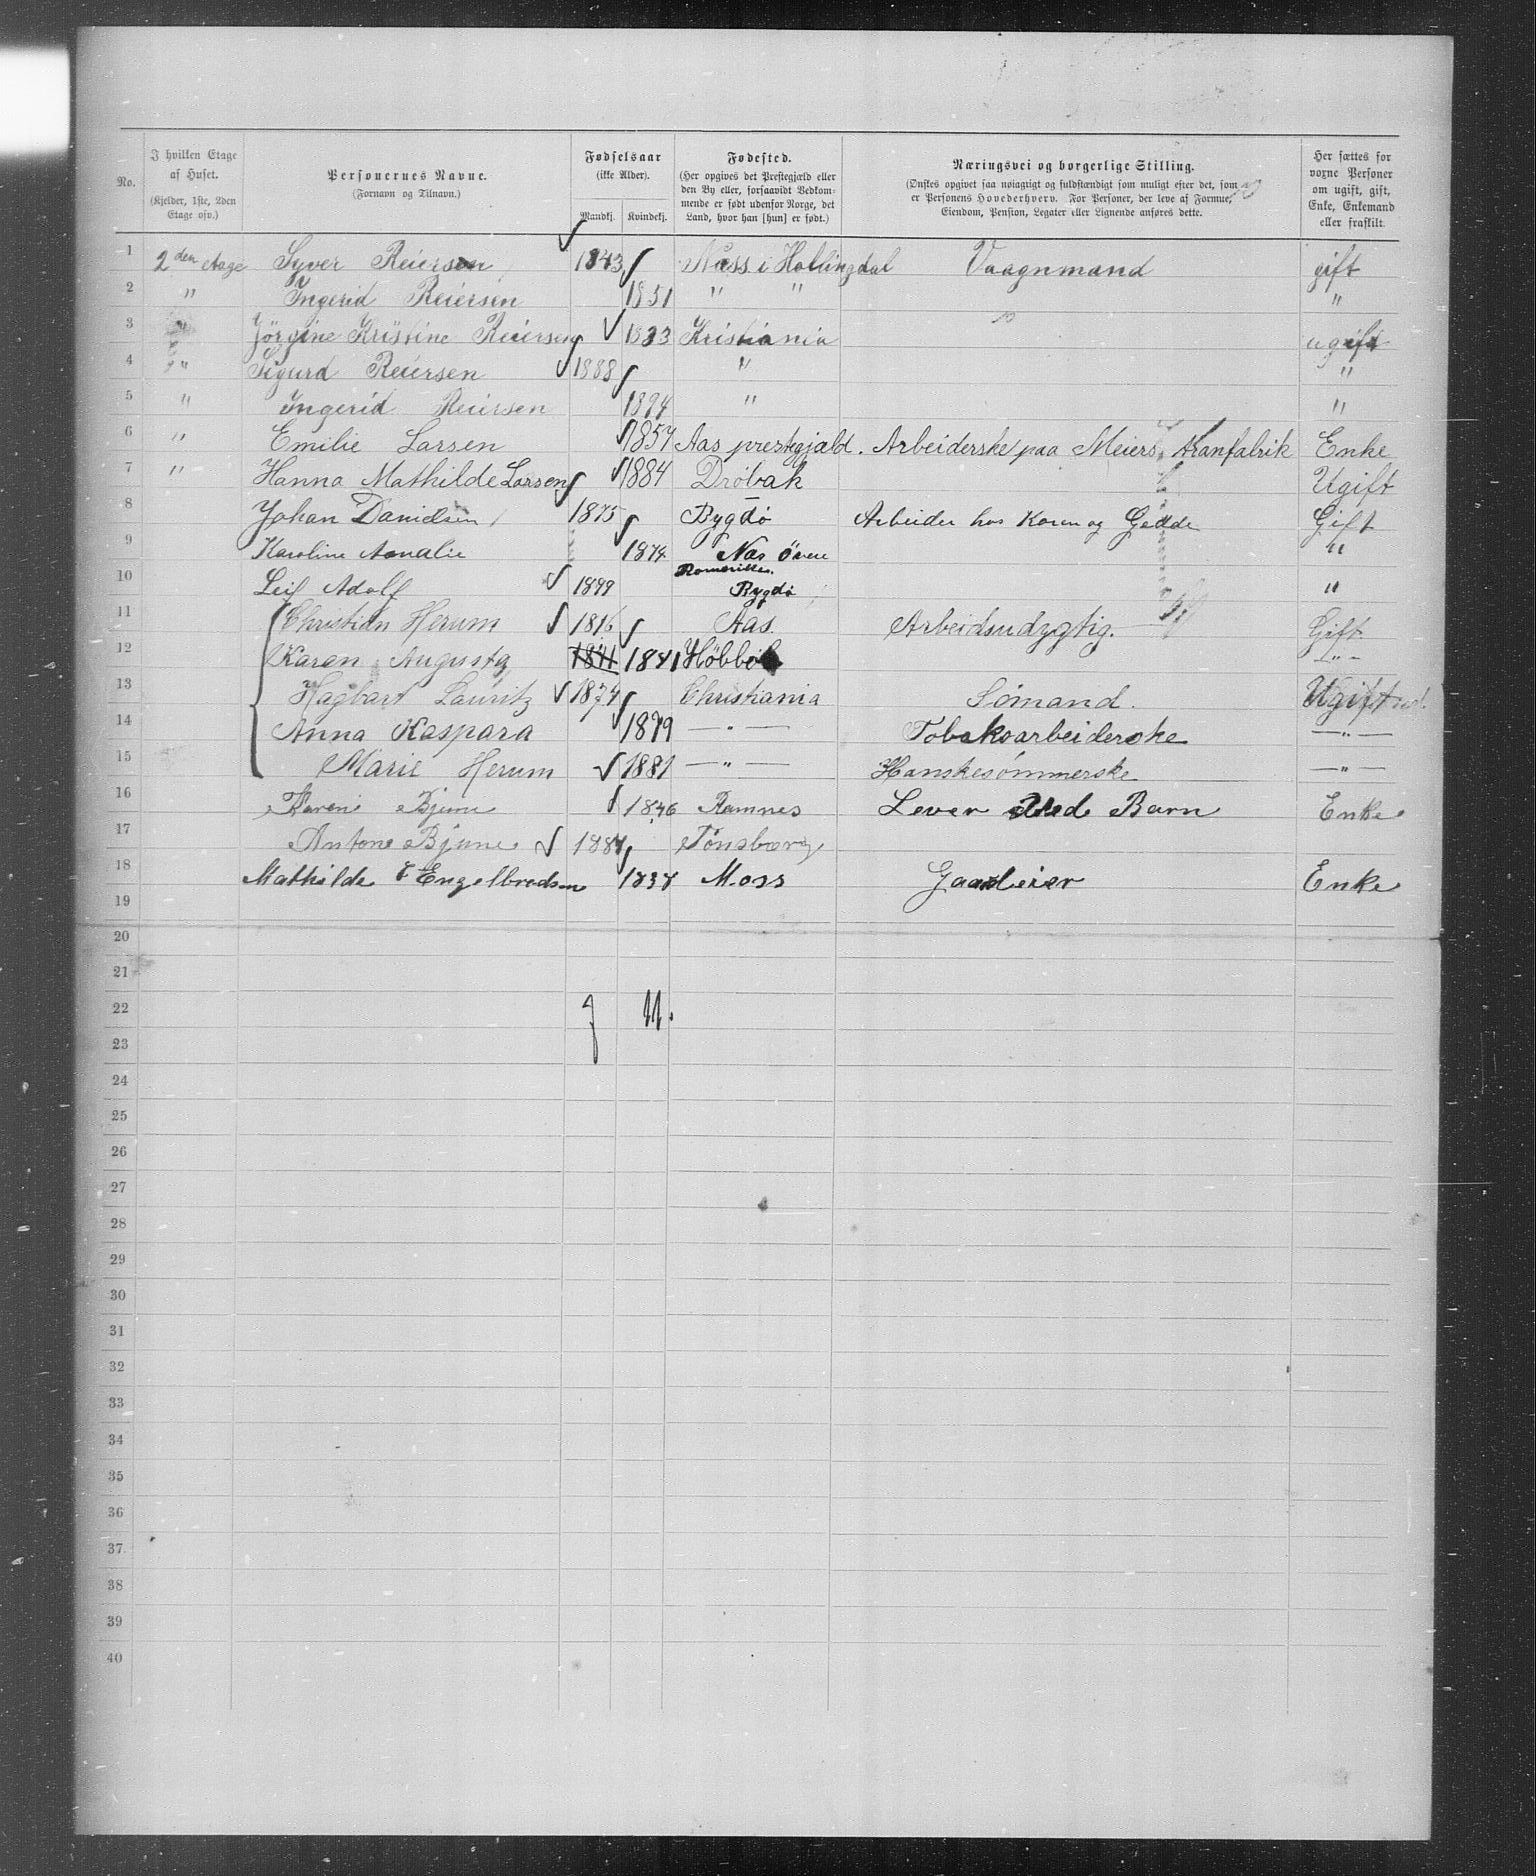 No. | I hvilken Etage af Huset. (Kjelder, 1ste, 2den Etage osv.) | Personernes Navne. (Fornavn og Tilnavn.) | Fødselsaar (ikke Alder). Mandkj. | Kvindekj. | Fødested. (Her opgives det Prestegjæld eller den By eller, forsaavidt Vedkommende er født udenfor Norge, det Land, hvor han [hun] er født.) | Næringsvei og borgerlige Stilling. (Ønskes opgivet saa nøiagtigt og fuldstændigt som muligt efter det, som er Personens Hovederhverv. For Personer, der leve af Formue, Eiendom, Pension, Legater eller Lignende anføres dette. | Her sættes for voxne Personer om ugift, gift, Enke, Enkemand eller fraskilt.
1 | 2den etage | Syver Reiersen | 1843 | | Næss i Hallingdal | Vaagnmand | gift
2 | " | Ingerid Reiersen | | 1851 | " " | | "
3 | " | Jörgine Kristine Reiersen | | 1883 | Kristiania | | ugift
4 | " | Sigurd Reiersen | 1888 | | " | | "
5 | " | Ingerid Reiersen | | 1894 | " | | "
6 | " | Emilie Larsen | | 1857 | Aas prestegjæld. | Arbeiderske paa Meiers Tranfabrik | Enke
7 | " | Hanna Mathilde Larsen | | 1884 | Drøbak | | Ugift
8 | | Johan Danielsen | 1875 | | Bygdö | Arbeider hos Koren og Gedde | Gift
9 | | Karoline Amalie | | 1874 | Næs övre Romerikes. | | "
10 | | Leif Adolf | 1899 | | Bygdö | | "
11 | | Christian Herum | 1816 | | Aas. | Arbeidsudygtig. | Gift
12 | | Karen Augusta | 1841 | 1841 | Høbbøl | | "
13 | | Hagbart Lauritz | 1874 | | Christiania | Sömand. | Ugift
14 | | Anna Kaspara | | 1879 | — " — | Tobakoarbeiderske | — " —
15 | | Marie Herum | | 1881 | — " — | Hanskesömmerske | — " —
16 | | Karen Bjune | | 1846 | Ramnes | Lever ved Barn | Enke
17 | | Antone Bjune | 1884 | | Tönsberg
18 | | Mathilde Engelbredsen | | 1838 | Moss | Gaardeier | Enke
19
20
21
22 | 7 | 11.
23
24
25
26
27
28
29
30
31
32
33
34
35
36
37
38
39
40